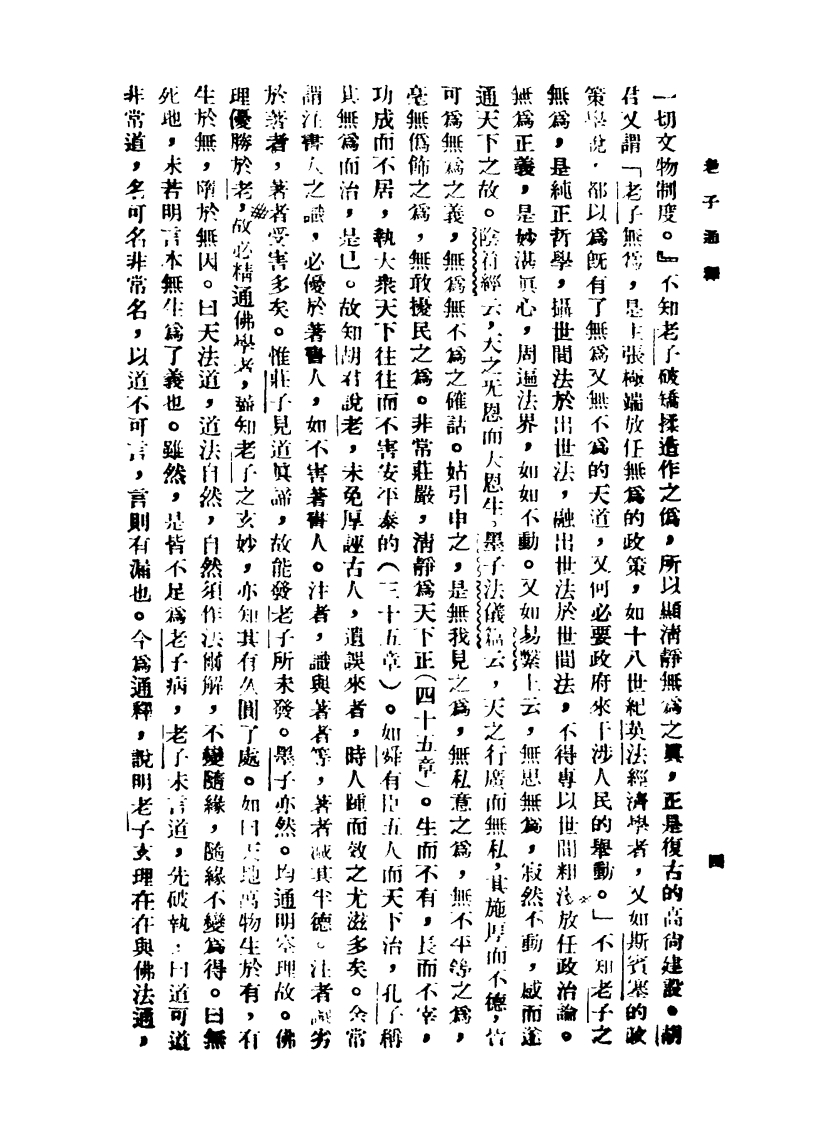 老子通釋
四
一切文物制度。』不知老子破矯揉造作之僞，所以顯清靜無爲之眞，正是復古的高尙建設。胡
君又謂「老子無爲，是主張極端放任無爲的政策，如十八世紀英法經濟學者，又如斯賓塞的政
策學說，都以爲旣有了無爲又無不爲的天道，又何必要政府來干涉人民的舉動。」不知老子之
無爲，是純正哲學，攝世間法於出世法，融出世法於世間法，不得專以世間粗淺放任政治論。
無爲正義，是妙湛眞心，周遍法界，如如不動。又如易繫上云，無思無爲，寂然不動，感而遂
通天下之故。陰符經云，天之无恩而大恩生，墨子法儀篇云，天之行廣而無私，其施厚而不德，皆
可爲無爲之義，無爲無不爲之確詁。姑引申之，是無我見之爲，無私意之爲，無不平等之爲，
毫無僞飾之爲，無敢擾民之爲。非常莊嚴，淸靜爲天下正（四十五章）。生而不有，長而不宰，
功成而不居，執大象天下往往而不害安平泰的（三十五章）。如舜有臣五人而天下治，孔子稱
其無爲而治，是已。故知胡君說老，未免厚誣古人，遺誤來者，時人踵而效之尤滋多矣。余常
謂注書人之識，必優於著書人，如不害著書人。注者，識與著者等，著者減其半德。注者識劣
於著者，著者受害多矣。惟莊子見道眞諦，故能發老子所未發。墨子亦然。均通明空理故。佛
理優勝於老，故必精通佛學者，益知老子之玄妙，亦知其有欠圓了處。如曰天地萬物生於有，有
生於無，墮於無因。曰天法道，道法自然，自然須作法爾解，不變隨緣，隨緣不變爲得。曰無
死地，未若明言本無生爲了義也。雖然，是皆不足爲老子病，老子未言道，先破執，曰道可道
非常道，名可名非常名，以道不可言，言則有漏也。今爲通釋，說明老子玄理在在與佛法通，